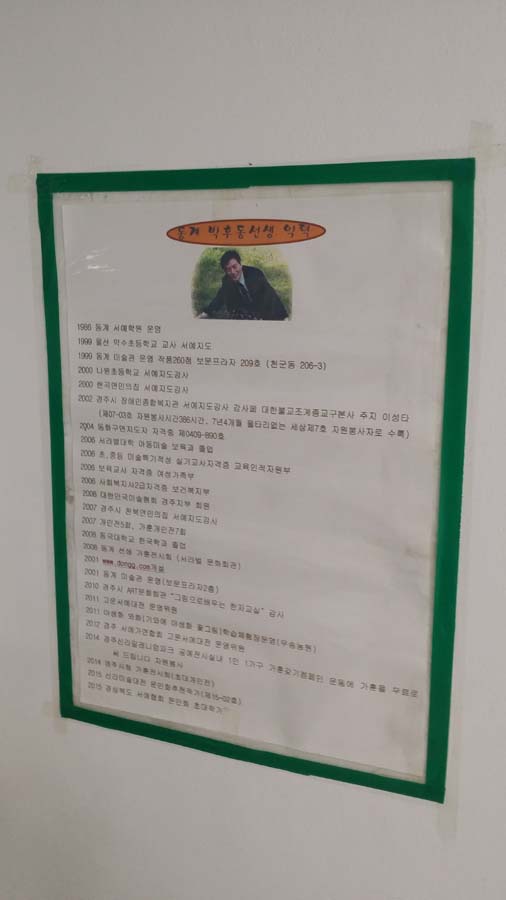 동계 박후동선생 약력
1986 동계 서예학원 운영
1999 울산 약수초등학교 교사 서예지도
1999 동계 미술관 운영 작품260점 보문프라자 209호 (천군동 206-3)
2000 나원초등학교 서예지도강사
2000 한국연민의집 서예지도강사
2002 경주시 장애인종합복지관 서예지도강사 감사패 대한불교조계종교구본사 주지 이성타
(제07-03호 자원봉사시간386시간, 7년4개월 울타리없는 세상제7호 자원봉사자로 수록)
2004 동화구연지도자 자격증 제0409-890호
2006 서라벌대학 아동미술 보육과 졸업
2006 초,중등 미술특기적성 실기교사자격증 교육인적자원부
2006 보육교사 자격증 여성가족부
2006 사회복지사2급자격증 보건복지부
2006 대한민국미술협회 경주지부 회원
2007 경주시 천북연민의집 서예지도강사
2007 개인전5회, 가훈개인전7회
2008 동국대학교 한국학과 졸업
2008 동계 선생 가훈전시회 (서라벌 문화회관)
2001 www.dongg.com개설
2001 동계 미술관 운영(보문프라자2층)
2010 경주시 ART문화회관 "그림으로배우는 한자교실" 강사
2011 고운서예대전 운영위원
2011 야생화 와화[기와에 야생화 꽃그림]학습체험장운영(우송농원)
2012 경주 서예가연합회 고운서예대전 운영위원
2014 경주신라밀레니엄파크 공예전시실내 1인 1가구 가훈갖기캠페인 운동에 가훈을 무료로
써 드립니다 자원봉사
2014 경주시청 가훈전시회(초대개인전)
2015 신라미술대전 문인화추천작가(제15-02호)
2015 경상북도 서예협회 문인화 초대작가